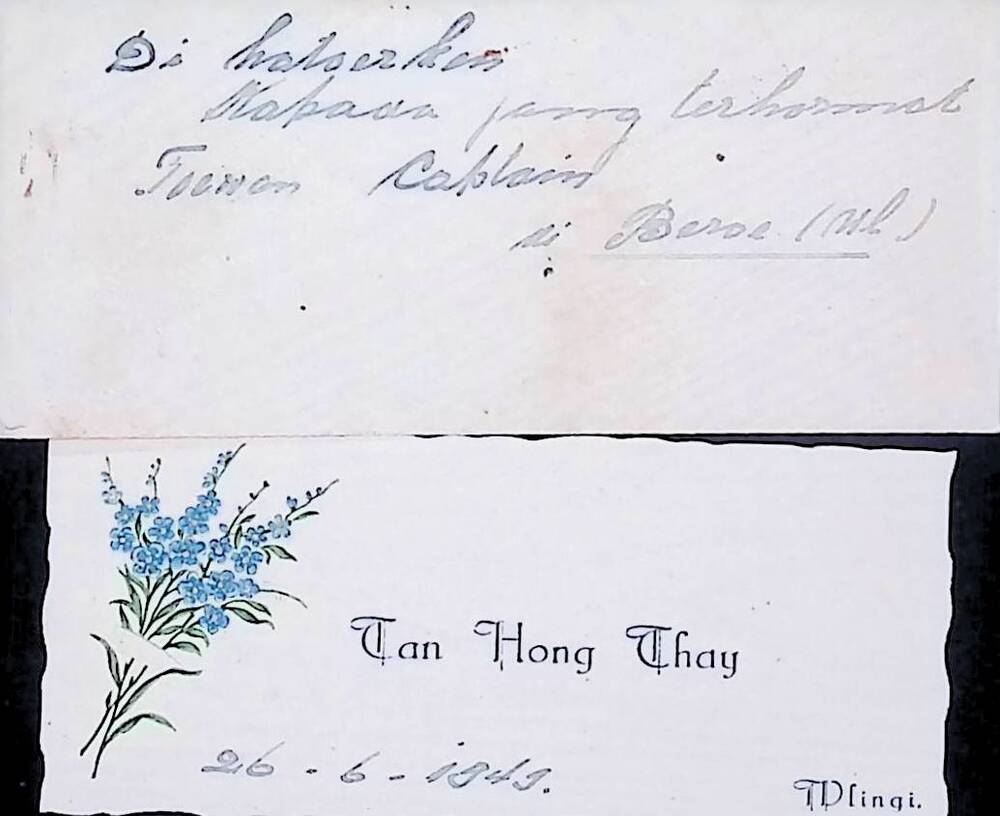 Di hatoerken
Kapada jang terhormat
Toewan Captain
di Beroe (Wl)
Tan Hong Thay
26 - 6 - 1949.
Wlingi.